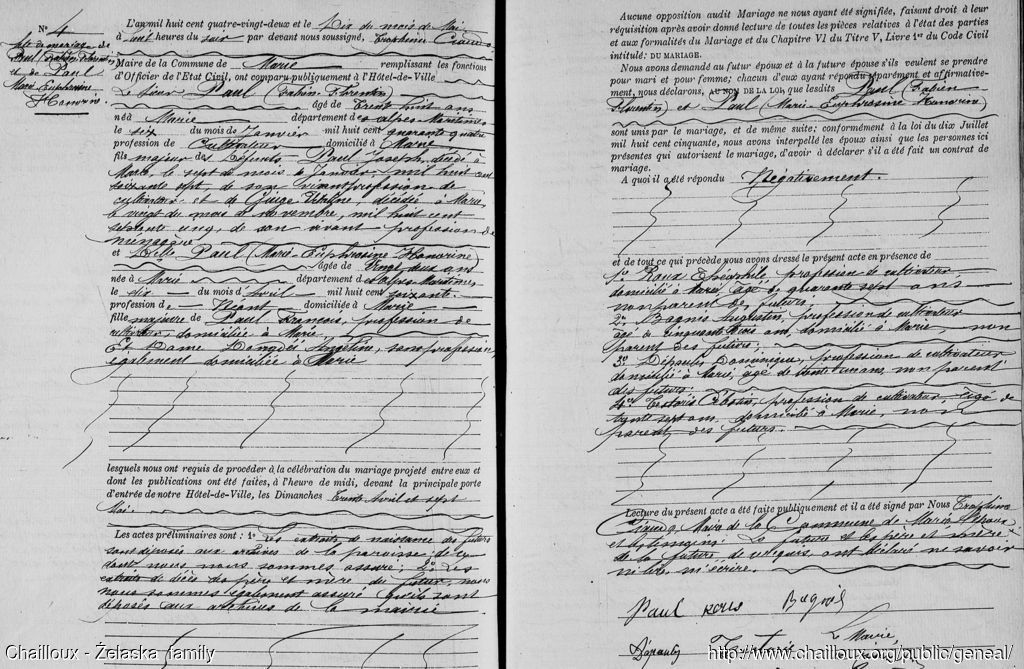 N° 4
Acte de mariage de
Paul (Fabien Florentin)
et de Paul
Marie Euphrosine
Honorine
L'an mil huit cent quatre-vingt-deux et le dix du mois de Mai
à heures du soir par devant nous soussigné, Trophime
Maire de la Commune de Marie remplissant les fonctions
d'Officier de l'Etat Civil, ont comparu publiquement à l'Hôtel-de-Ville
Le sieur Paul (Fabien Florentin)
âgé de Trente huit ans
né à Marie département des Alpes Maritimes
le six du mois de Janvier mil huit cent quarante quatre
profession de Cultivateur domicilié à Marie
fils majeur des Défunts Paul Joseph, décédé à
Marie, le sept du mois de Janvier mil huit cent
soixante sept, de son vivant profession de
cultivateur et de décédée à Marie,
le vingt du mois de novembre, mil huit cent
septante un, de son vivant profession de
ménagère
et Delle Paul (Marie-Euphrosine Honorine)
âgée de Vingt deux ans
née à Marie département des Alpes Maritimes
le dix du mois d'Avril mil huit cent soixante
profession de Néant domiciliée à Marie
fille majeure de Paul François, profession de
cultivateur, domicilié à Marie
Et Dame Angéline, sans profession,
également domiciliée à Marie
lesquels nous ont requis de procéder à la célébration du mariage projeté entre eux et
dont les publications ont été faites, à l'heure de midi, devant la principale porte
d'entrée de notre Hôtel-de-Ville, les Dimanches Trente Avril et sept
Mai
Les actes préliminaires sont : 1° Les extraits de naissance des futurs
sont déposés aux archives de la paroisse; de ce
dont nous nous sommes assuré; 2° Les
extraits de décès des père et mère du futur, nous
nous sommes également assuré qu'ils sont
déposés aux archives de la mairie
Aucune opposition audit Mariage ne nous ayant été signifiée, faisant droit à leur
réquisition après avoir donné lecture de toutes les pièces relatives à l'état des parties
et aux formalités du Mariage et du Chapitre VI du Titre V, Livre 1er du Code Civil
intitulé: DU MARIAGE.
Nous avons demandé au futur époux et à la future épouse s'ils veulent se prendre
pour mari et pour femme; chacun d'eux ayant répondu séparément et affirmative-
ment, nous déclarons, AU NOM DE LA LOI, que lesdits Paul (Fabien
Florentin) et Paul (Marie-Euphrosine Honorine)
sont unis par le mariage, et de même suite; conformément à la loi du dix Juillet
mil huit cent cinquante, nous avons interpellé les époux ainsi que les personnes ici
présentes qui autorisent le mariage, d'avoir à déclarer s'il a été fait un contrat de
mariage.
A quoi il a été répondu Négativement.
et de tout ce qui précède nous avons dressé le présent acte en présence de
1° Roux Théophile profession de cultivateur,
domicilié à Marie, âgé de quarante sept ans
non parent des futurs;
2° Bagnis Augustin, profession de cultivateur
âgé de cinquante trois ans, domicilié à Marie, non
parent des futurs;
3° Dépaulis Dominique, profession de cultivateur
domicilié à Marie, âgé de trente un ans, non parent
des futurs;
4° profession de cultivateur, âgé de
trente sept ans, domicilié à Marie, non
parent des futurs.
Lecture du présent acte a été faite publiquement et il a été signé par Nous Trophime
Maire de la Commune de Marie, l'époux,
et les témoins. La future et les père et mère
de la future, de ce requis, ont déclaré ne savoir
ni lire ni écrire.
Paul roux Bagnis
Dépaulis
Le Maire
Chailloux - Żelaska family
http://www.chailloux.org/public/geneal/